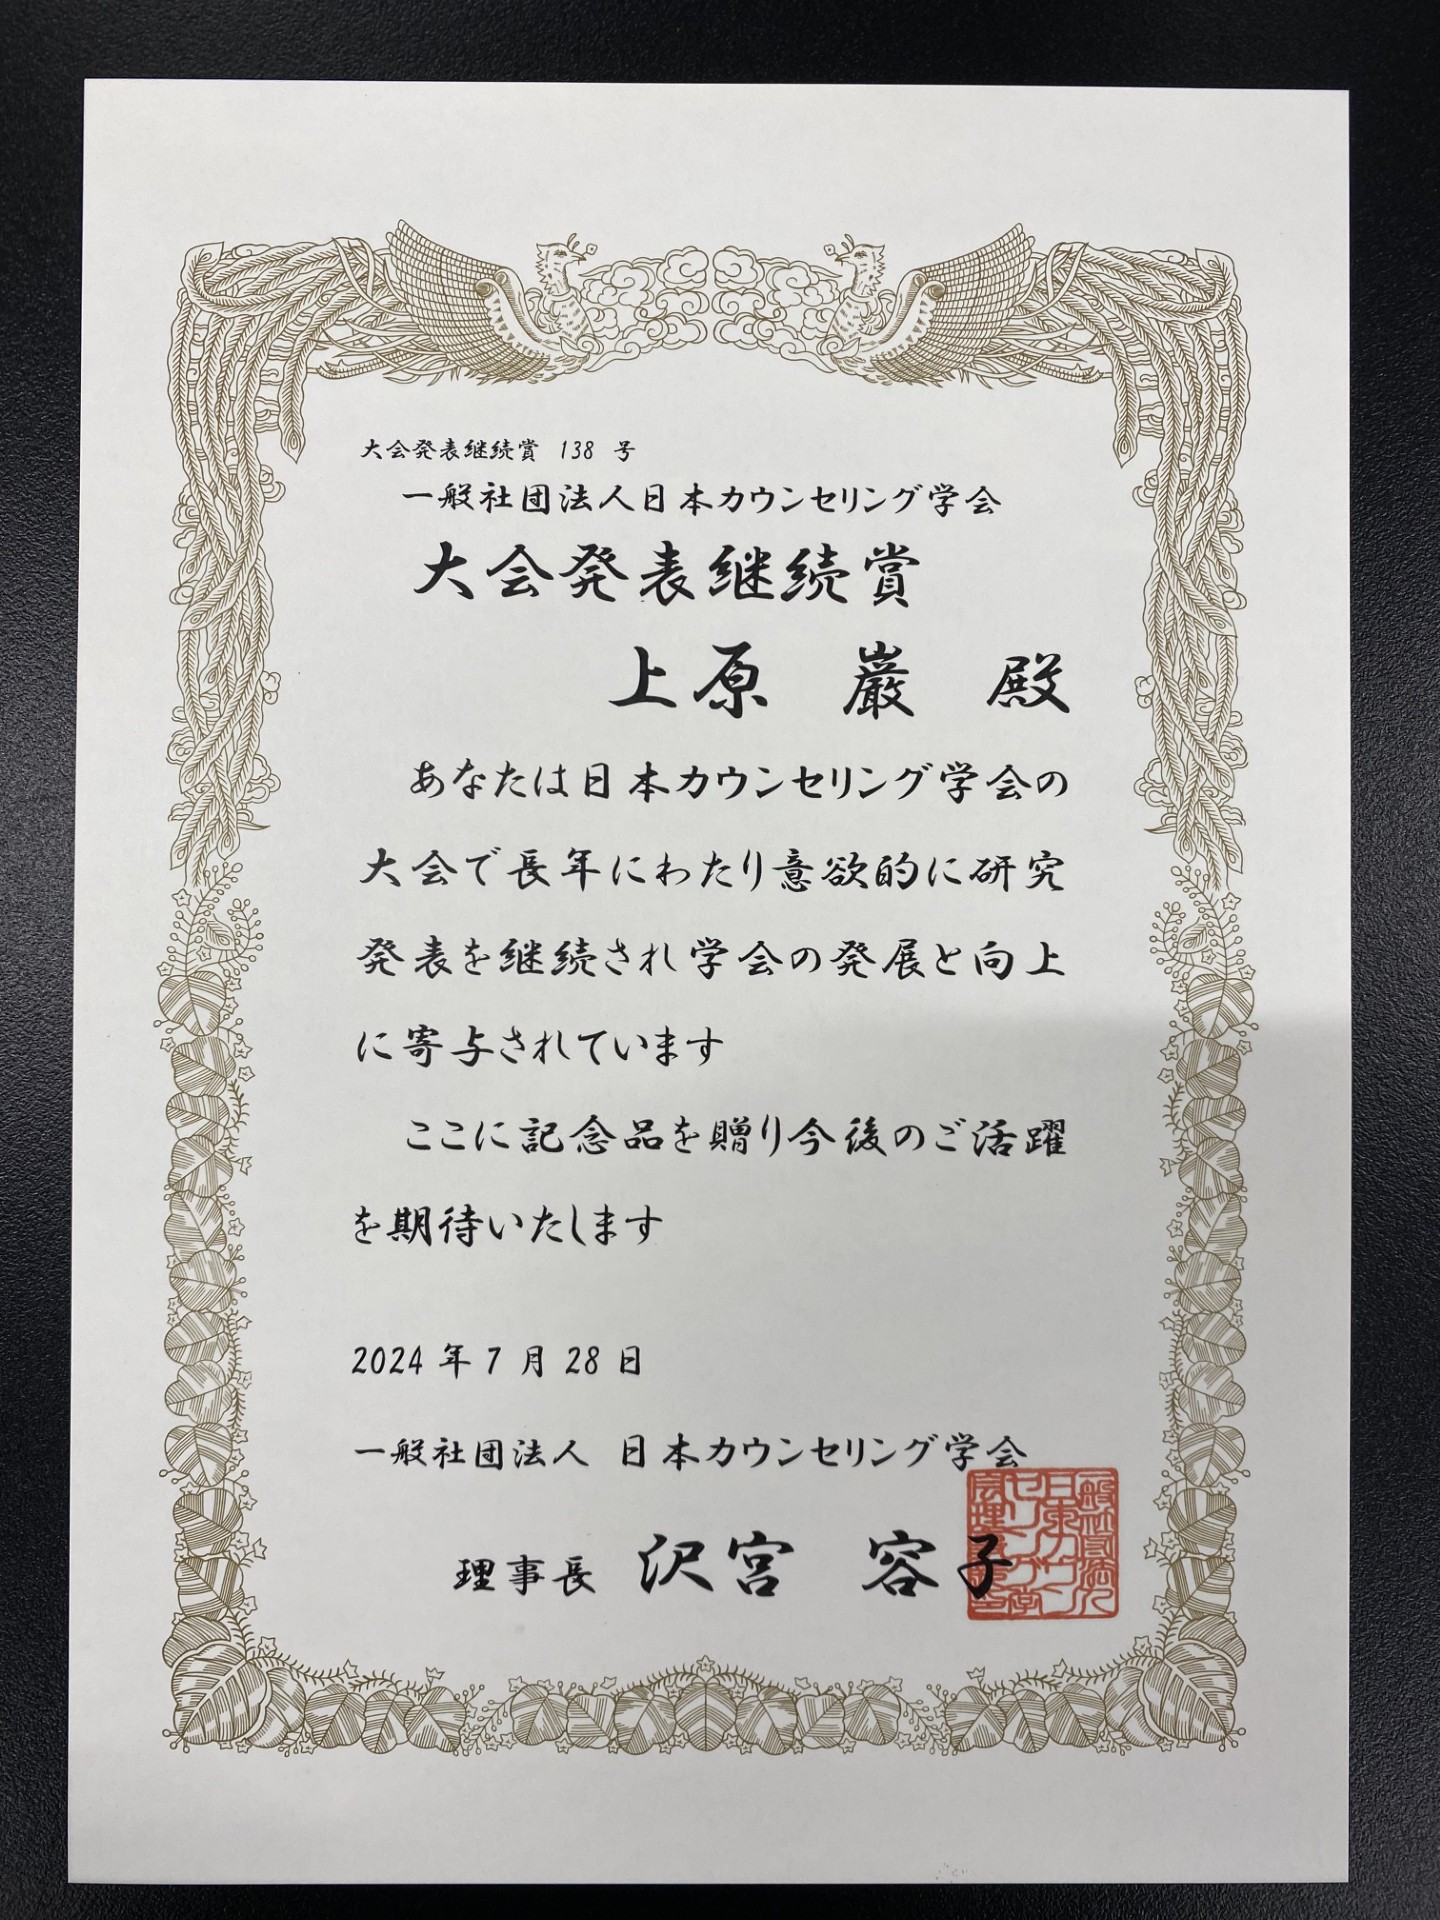 大会発表継続賞 138 号
一般社団法人日本カウンセリング学会
大会発表継続賞
上原 巌 殿
あなたは日本カウンセリング学会の
大会で長年にわたり意欲的に研究
発表を継続され学会の発展と向上
に寄与されています
ここに記念品を贈り今後のご活躍
を期待いたします
2024 年 7 月 28 日
一般社団法人 日本カウンセリング学会
理事長 沢宮 容子